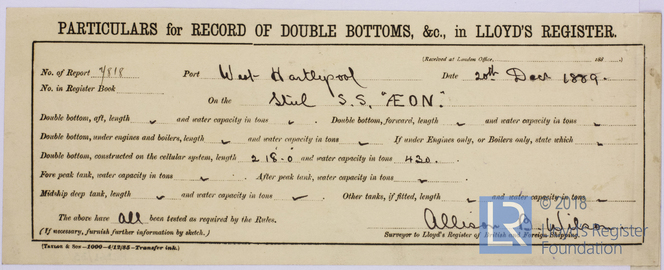 PARTICULARS for RECORD OF DOUBLE BOTTOMS, &c., in LLOYD'S REGISTER.
(Received at London Office, 188 .)
No. of Report 7818 Port West Hartlepool Date 20th Decr 1889.
No. in Register Book
On the Steel S.S. "ÆON."
Double bottom, aft, length " and water capacity in tons " . Double bottom, forward, length " and water capacity in tons "
Double bottom, under engines and boilers, length " and water capacity in tons " If under Engines only, or Boilers only, state which "
Double bottom, constructed on the cellular system, length 218·0 and water capacity in tons 430 .
Fore peak tank, water capacity in tons " . After peak tank, water capacity in tons "
Midship deep tank, length " and water capacity in tons " Other tanks, if fitted, length " and water capacity in tons "
The above have all been tested as required by the Rules.
(If necessary, furnish further information by sketch.)
Allison B Wilson
Surveyor to Lloyd's Register of British and Foreign Shipping.
(TAYLOR & SON—1000—4/12/85—Transfer ink.)
© 2018
LR Lloyd's Register
Foundation